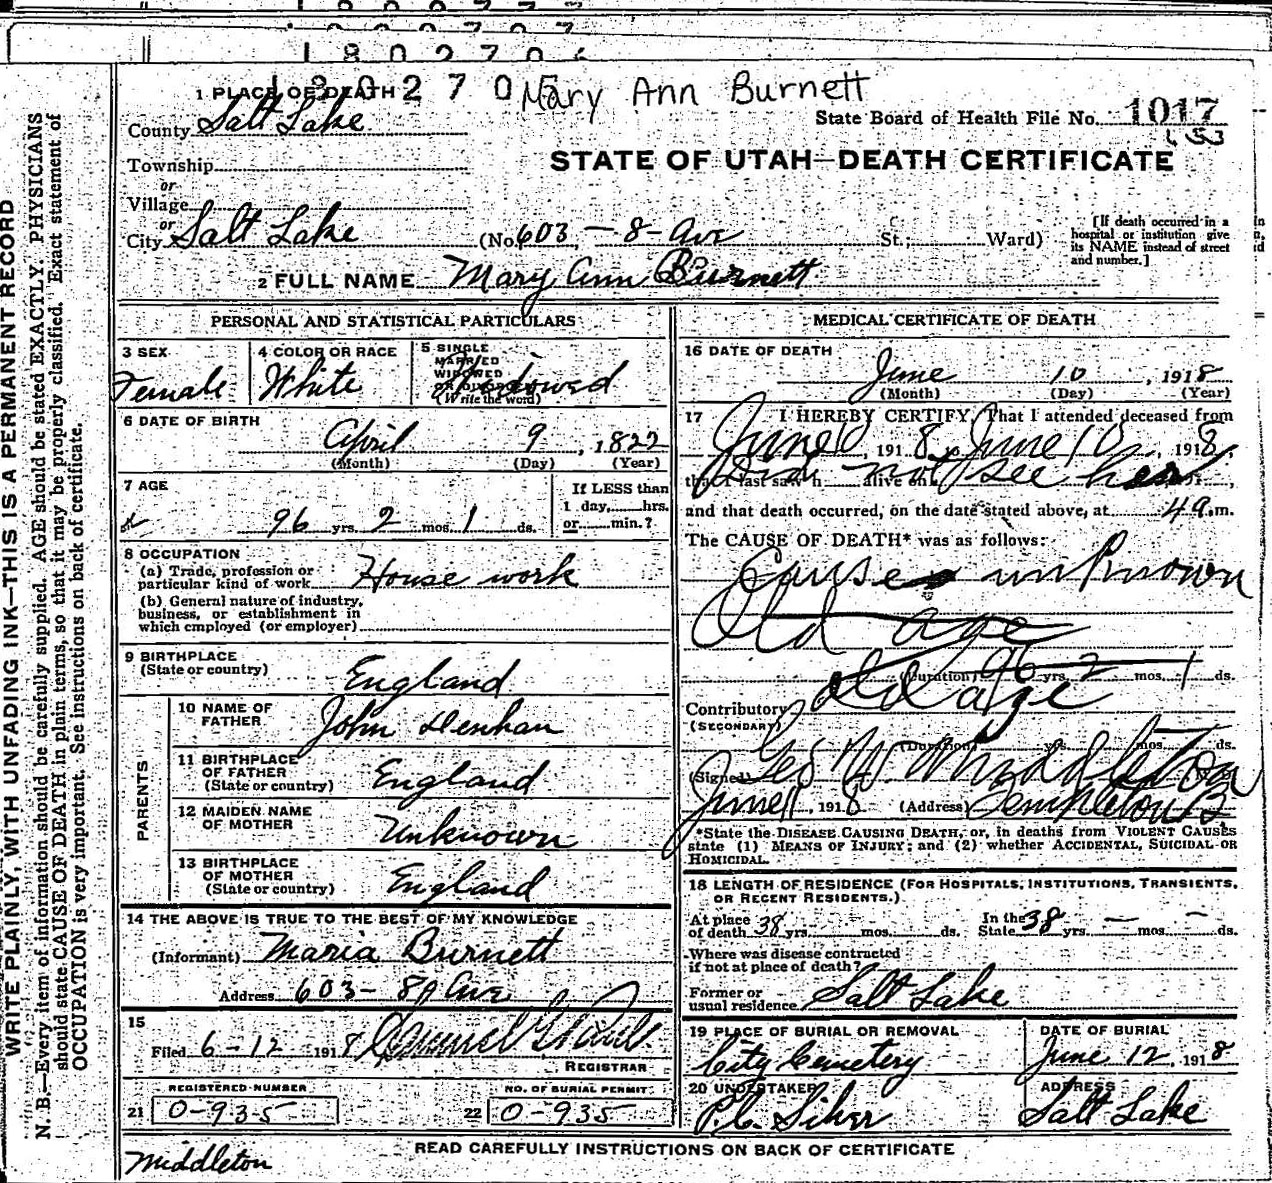 180270
Mary Ann Burnett
1 PLACE OF DEATH
County Salt Lake
State Board of Health File No. 1017
153
STATE OF UTAH—DEATH CERTIFICATE
Township
or
Village
or
City Salt Lake (No. 603 — 8 - Ave St.; Ward)
[If death occurred in a hospital or institution give its NAME instead of street and number.]
2 FULL NAME Mary Ann Burnett
PERSONAL AND STATISTICAL PARTICULARS
3 SEX Female
4 COLOR OR RACE White
5 SINGLE MARRIED WIDOWED OR DIVORCED (Write the word) Widowed
6 DATE OF BIRTH
April 9, 1822
(Month) (Day) (Year)
7 AGE
96 yrs. 2 mos. 1 ds.
If LESS than 1 day, hrs. or min.?
8 OCCUPATION
(a) Trade, profession or particular kind of work House work
(b) General nature of industry, business, or establishment in which employed (or employer)
9 BIRTHPLACE
(State or country) England
PARENTS
10 NAME OF FATHER John Denhan
11 BIRTHPLACE OF FATHER (State or country) England
12 MAIDEN NAME OF MOTHER Unknown
13 BIRTHPLACE OF MOTHER (State or country) England
14 THE ABOVE IS TRUE TO THE BEST OF MY KNOWLEDGE
(Informant) Maria Burnett
Address 603 - 8th Ave
15
Filed 6 - 12 1918
REGISTRAR
REGISTERED NUMBER
21 0-935
NO. OF BURIAL PERMIT
22 0-935
MEDICAL CERTIFICATE OF DEATH
16 DATE OF DEATH
June 10, 1918
(Month) (Day) (Year)
17 I HEREBY CERTIFY, That I attended deceased from
June 10, 1918, to June 10, 1918,
that I last saw h alive on
Did not see her
and that death occurred, on the date stated above, at 4 a.m.
The CAUSE OF DEATH* was as follows:
Cause unknown
Old age
(Duration) 96 yrs. 2 mos. 1 ds.
Contributory old age
(SECONDARY)
(Duration) yrs. mos. ds.
(Signed) Geo W. Middleton
June 11, 1918 (Address) Templeton B
*State the DISEASE CAUSING DEATH, or, in deaths from VIOLENT CAUSES state (1) MEANS OF INJURY; and (2) whether ACCIDENTAL, SUICIDAL OR HOMICIDAL.
18 LENGTH OF RESIDENCE (FOR HOSPITALS, INSTITUTIONS, TRANSIENTS, OR RECENT RESIDENTS.)
At place of death 38 yrs. mos. ds. In the State 38 yrs. — mos. — ds.
Where was disease contracted if not at place of death?
Former or usual residence Salt Lake
19 PLACE OF BURIAL OR REMOVAL
City Cemetery
DATE OF BURIAL
June 12, 1918
20 UNDERTAKER
ADDRESS
Salt Lake
READ CAREFULLY INSTRUCTIONS ON BACK OF CERTIFICATE
Middleton
WRITE PLAINLY, WITH UNFADING INK—THIS IS A PERMANENT RECORD
N. B.—Every item of information should be carefully supplied. AGE should be stated EXACTLY. PHYSICIANS
should state CAUSE OF DEATH in plain terms, so that it may be properly classified. Exact statement of
OCCUPATION is very important. See instructions on back of certificate.